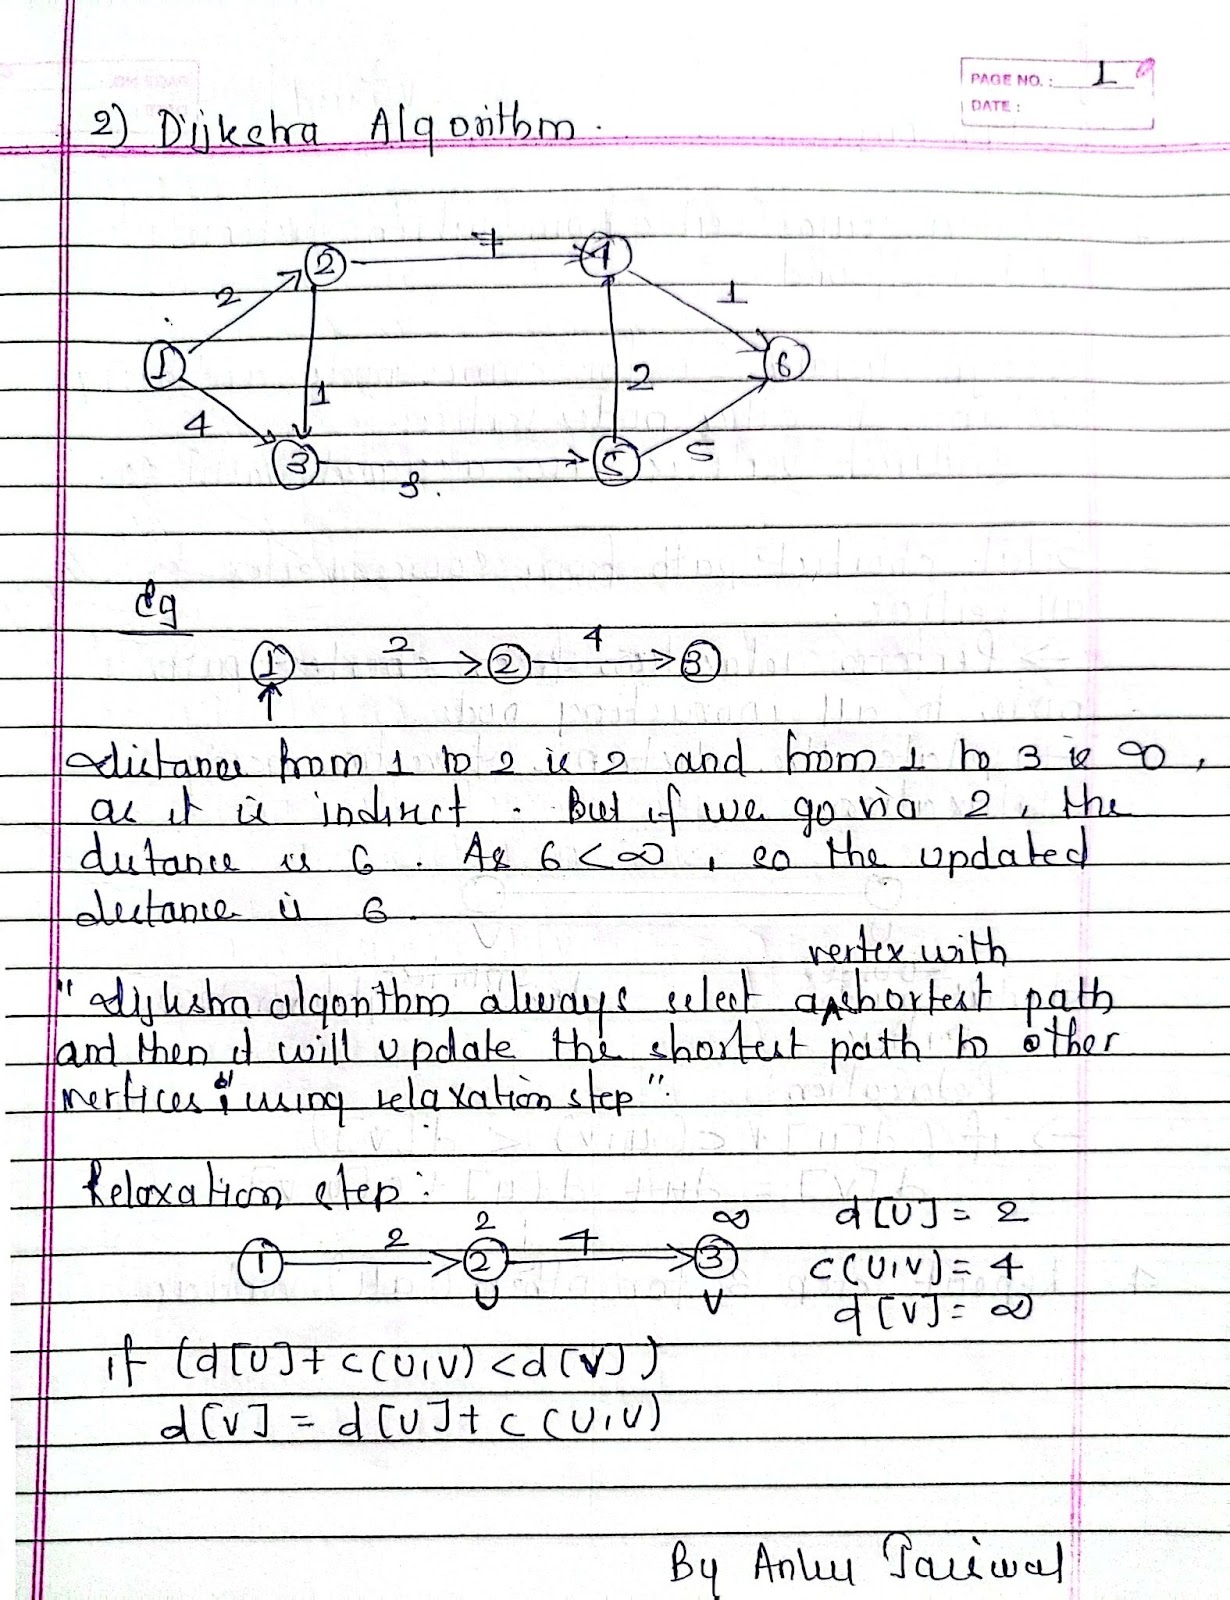 PAGE NO.: 1
DATE:
2) Dijkstra Algorithm.
2 7 4
2 1
1 6
1 2
4
3 5 5
3.
eg
2 4
1 2 3
distance from 1 to 2 is 2 and from 1 to 3 is ∞,
as it is indirect. But if we go via 2, the
distance is 6. As 6 < ∞, so the updated
distance is 6.
vertex with
"dijkstra algorithm always select a shortest path
and then it will update the shortest path to other
vertices using relaxation step".
Relaxation step:
2 ∞ d[U] = 2
2 4
1 2 3 c(U,V) = 4
U V d[V] = ∞
if (d[U] + c(U,V) < d[V])
d[V] = d[U] + c(U,V)
By